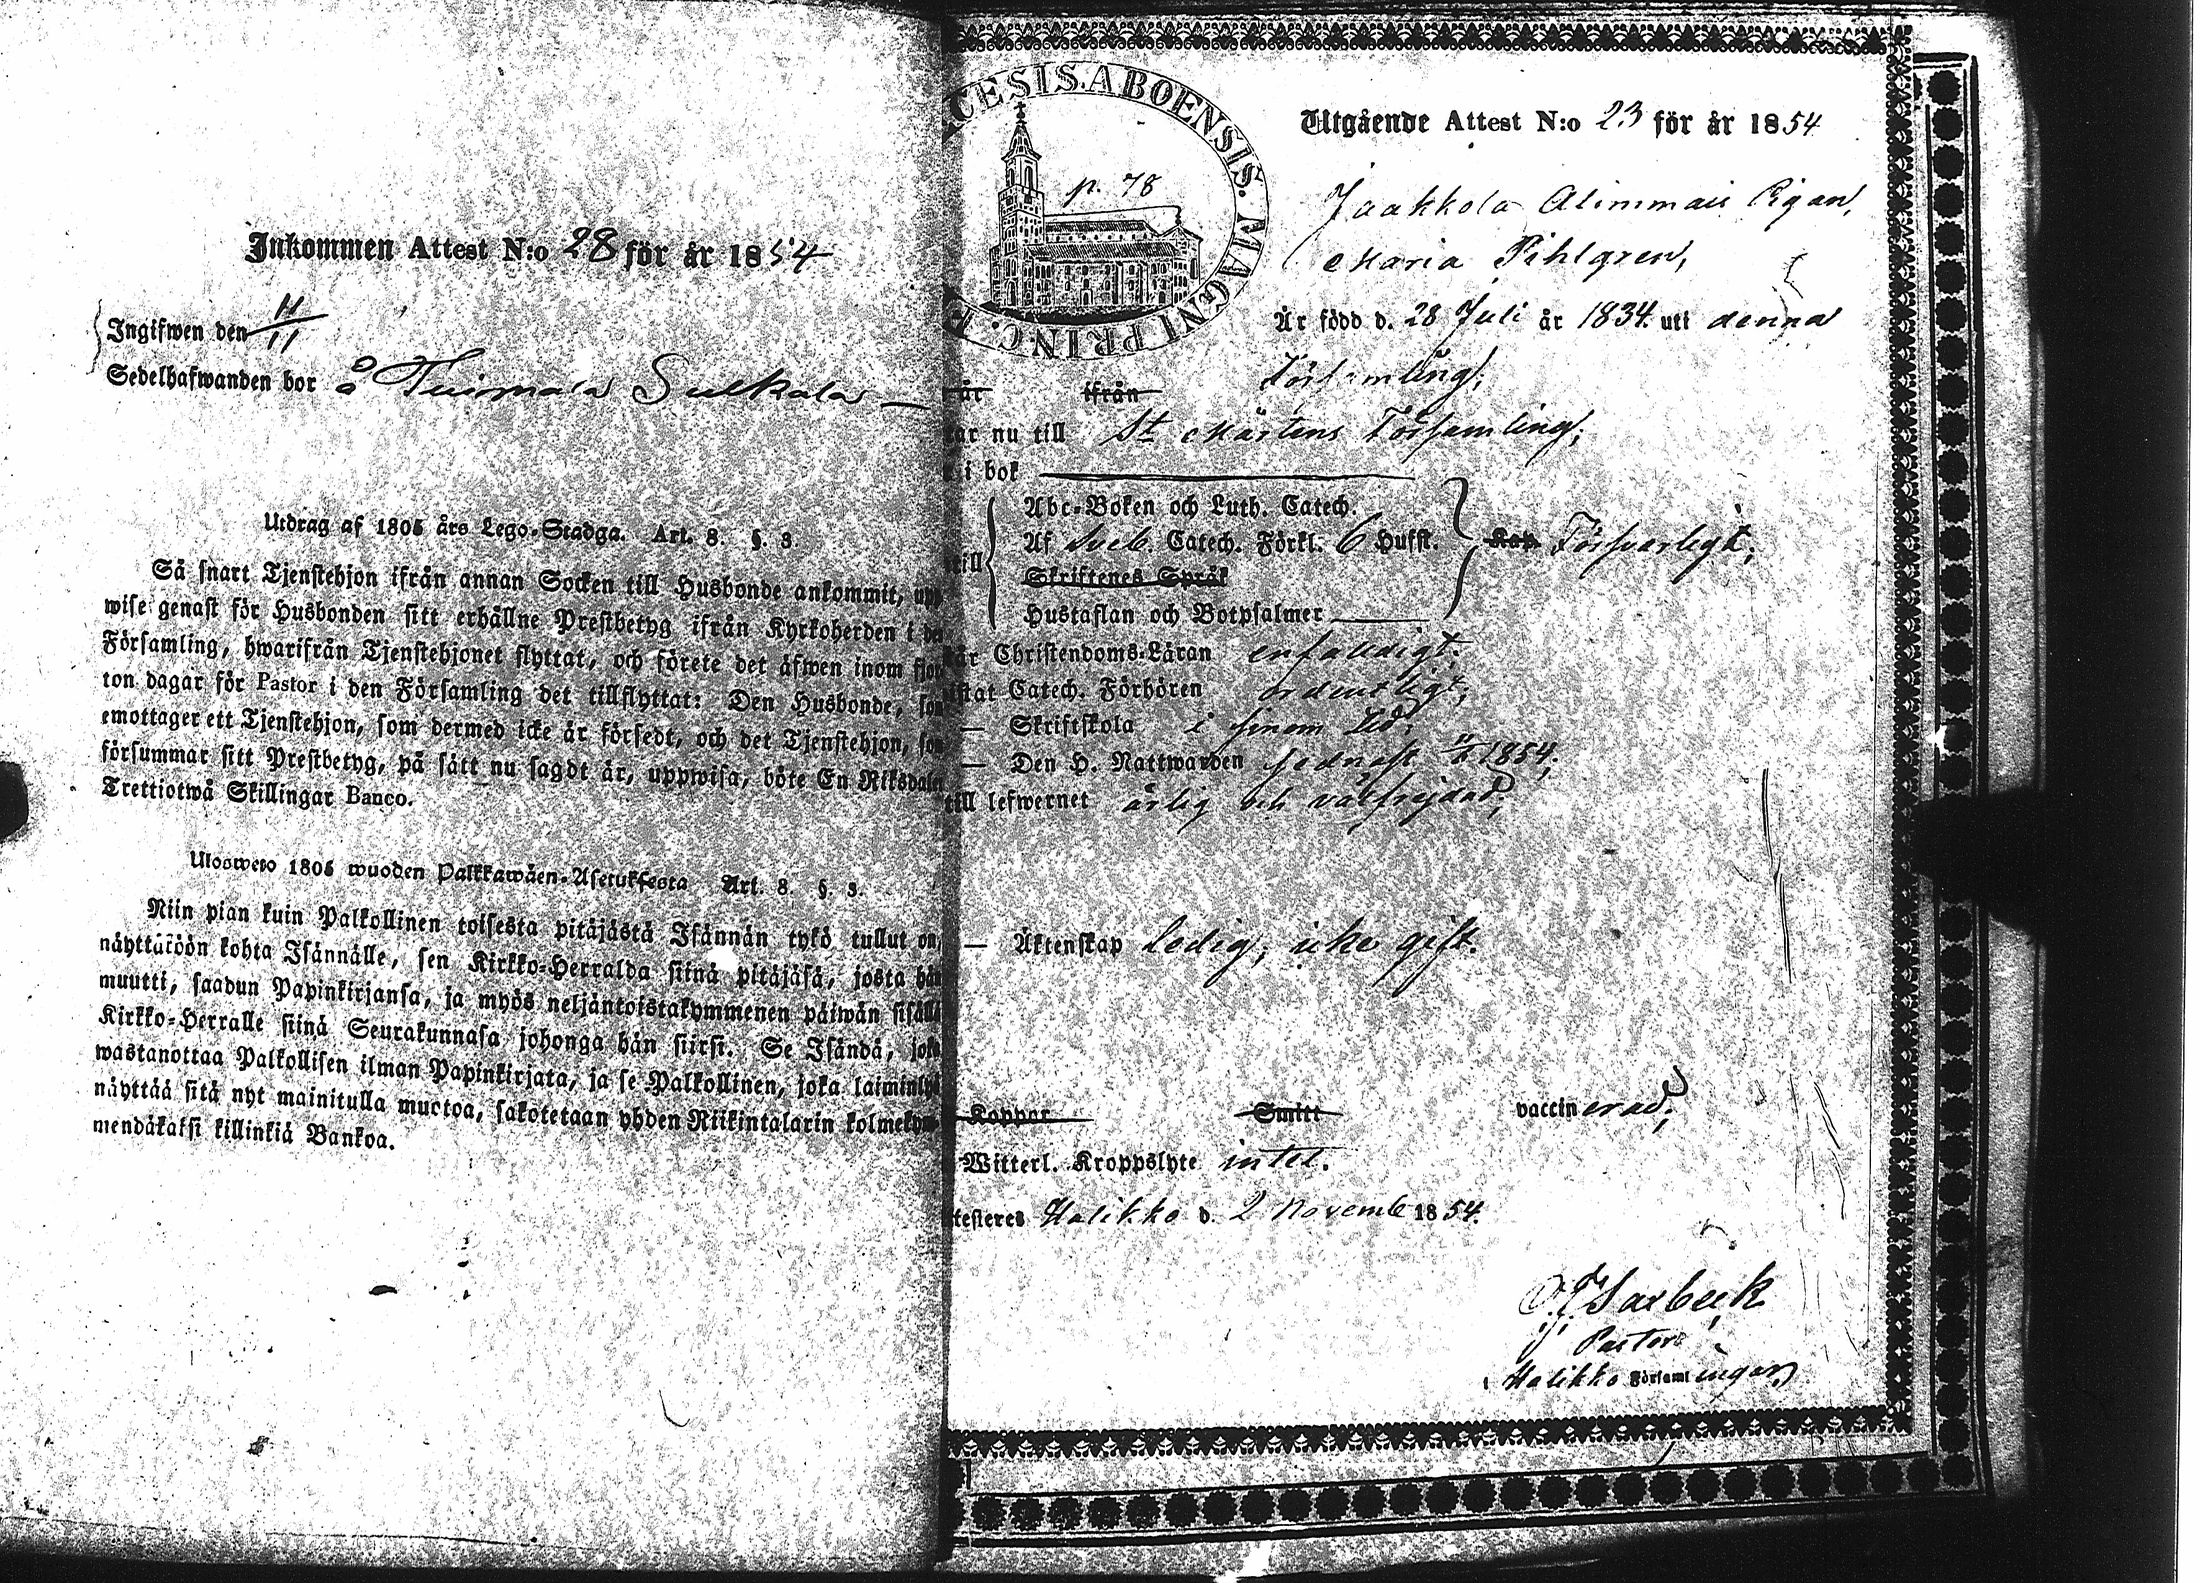 Inkommen Attest N:o 28 för år 1854
Ingifwen den 11/11
Sedelhafwanden bor å Tuimala Sulkala
Utdrag af 1805 års Lego-Stadga. Art. 8. §. 3.
Så snart Tjenstehjon ifrån annan Socken till Husbonde ankommit, upp
wise genast för Husbonden sitt erhållne Prestbetyg ifrån Kyrkoherden i den
Församling, hwarifrån Tjenstehjonet flyttat, och förete det äfwen inom fjor
ton dagar för Pastor i den Församling det tillflyttat: Den Husbonde, som
emottager ett Tjenstehjon, som dermed icke är försedt, och det Tjenstehjon, som
försummar sitt Prestbetyg, på sätt nu sagdt är, uppwisa, böte En Riksdaler
Trettiotwå Skillingar Banco.
Uloswето 1805 wuoden Palkkawäen-Asetuksesta Art. 8. §. 3.
Niin pian kuin Palkollinen toisesta pitäjästä Isännän tykö tullut on,
näyttäköön kohta Isännälle, sen Kirkko-Herralda siinä pitäjäsä, josta hän
muutti, saadun Papinkirjansa, ja myös neljäntoistakymmenen päiwän sisällä
Kirkko-Herralle siinä Seurakunnasa johonga hän siirsi. Se Isändä, joka
wastanottaa Palkollisen ilman Papinkirjata, ja se Palkollinen, joka laiminlyö
näyttää sitä nyt mainitulla muotoa, sakotetaan yhden Riikintalarin kolmekym-
mendäkaksi killinkiä Bankoa.
CESIS. ABOENSIS. MAGNI PRINC. F
p. 78
Utgående Attest N:o 23 för år 1854
Jaakkola Alimmais Pigan,
Maria Pihlgren,
Är född d. 28 Juli år 1834. uti denna
är ifrån Församling;
ar nu till St Mårtens Församling;
i bok
Abc-Boken och Luth. Catech.
till Af Sveb. Catech. Förkl. 6 Hufst. Kap. Försvarligt;
Skriftenes Språk
Hustaflan och Botpsalmer
Christendoms-Läran enfaldigt;
istat Catech. Förhören ordentligt;
— Skriftskola i sinom tid;
— Den H. Nattwarden sednast 1854;
till lefwernet ärlig och välfrejdad;
— Äktenskap Ledig, icke gift.
Koppor Smitt vaccinerad;
Witterl. Kroppslyte intet.
testeres Halikko d. 2 Novemb 1854.
Pastor
Halikko Församlingar